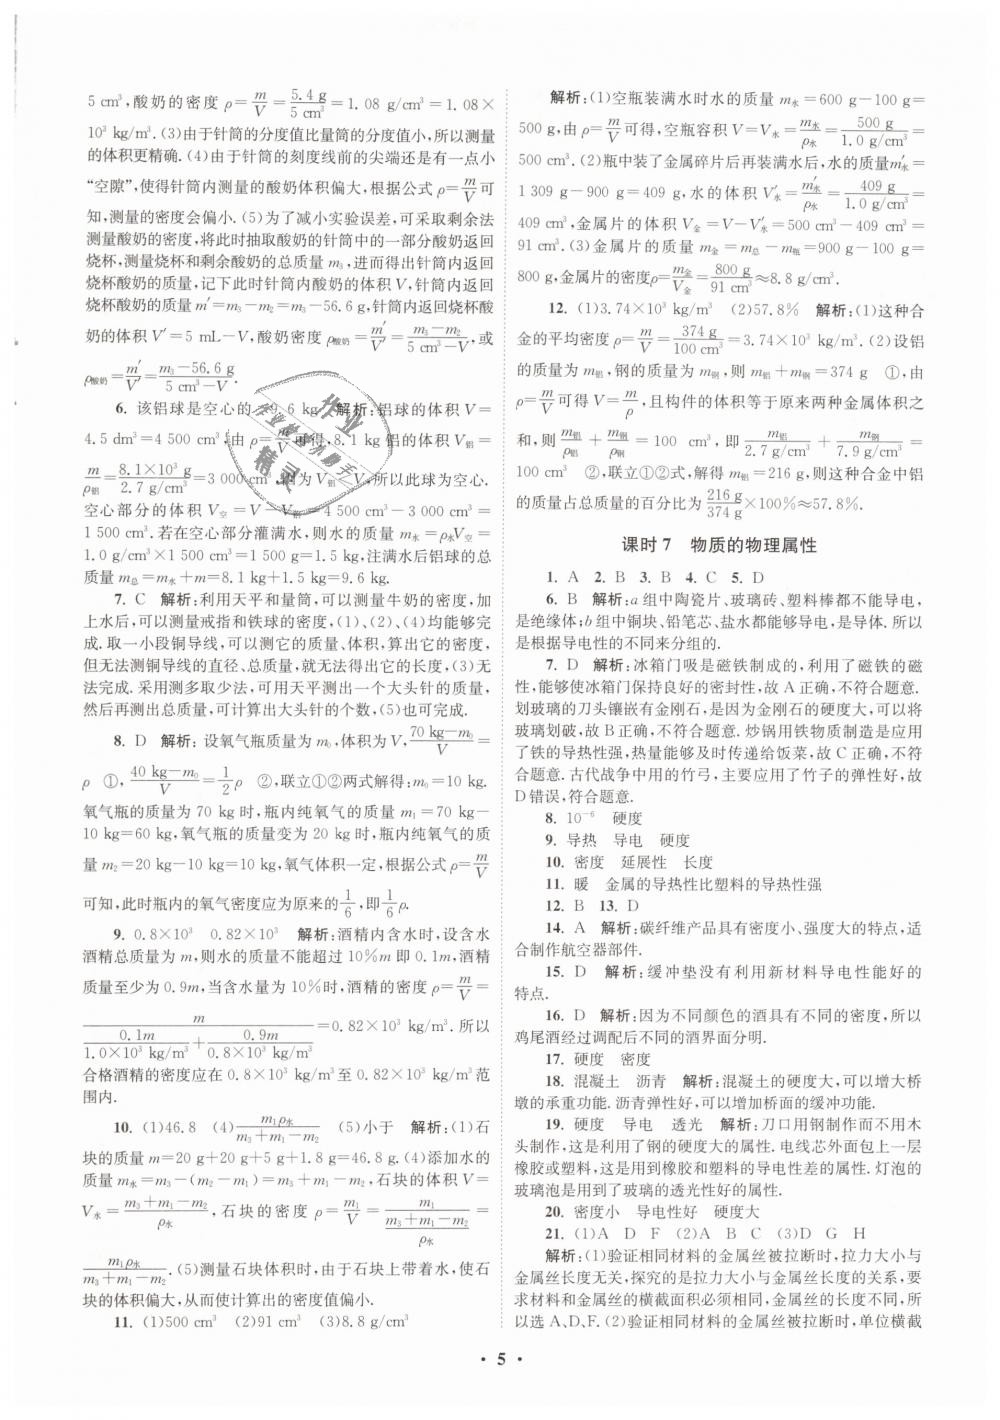 5 cm³,酸奶的密度 ρ=m/V=5.4 g/5 cm³=1.08 g/cm³=1.08×
10³ kg/m³.(3)由于针筒的分度值比量筒的分度值小,所以测量
的体积更精确.(4)由于针筒的刻度线前的尖端还是有一点小
“空隙”,使得针筒内测量的酸奶体积偏大,根据公式 ρ=m/V可
知,测量的密度会偏小.(5)为了减小实验误差,可采取剩余法
测量酸奶的密度,将此时抽取酸奶的针筒中的一部分酸奶返回
烧杯,测量烧杯和剩余酸奶的总质量 m₃,进而得出针筒内返回
烧杯酸奶的质量,记下此时针筒内酸奶的体积 V,针筒内返回
烧杯酸奶的质量 m′=m₃-m₂=m₃-56.6 g,针筒内返回烧杯酸
奶的体积 V′=5 mL-V,酸奶密度 ρ酸奶=m′/V′=(m₃-m₂)/(5 cm³-V),或
ρ酸奶=m′/V′=(m₃-56.6 g)/(5 cm³-V).
6. 该铝球是空心的 9.6 kg 解析:铝球的体积 V=
4.5 dm³=4 500 cm³,由 ρ=m/V可得,8.1 kg 铝的体积 V铝=
m/ρ铝=8.1×10³ g/2.7 g/cm³=3 000 cm³,因为 V铝<V,所以此球为空心.
空心部分的体积 V空=V-V铝=4 500 cm³-3 000 cm³=
1 500 cm³.若在空心部分灌满水,则水的质量 m水=ρ水V空=
1.0 g/cm³×1 500 cm³=1 500 g=1.5 kg,注满水后铝球的总
质量 m总=m水+m=8.1 kg+1.5 kg=9.6 kg.
7. C 解析:利用天平和量筒,可以测量牛奶的密度,加
上水后,可以测量戒指和铁球的密度,(1)、(2)、(4)均能够完
成.取一小段铜导线,可以测它的质量、体积,算出它的密度,
但无法测铜导线的直径、总质量,就无法得出它的长度,(3)无
法完成.采用测多取少法,可用天平测出一个大头针的质量,
然后再测出总质量,可计算出大头针的个数,(5)也可完成.
8. D 解析:设氧气瓶质量为 m₀,体积为 V,(70 kg-m₀)/V=
ρ ①,(40 kg-m₀)/V=1/2ρ ②,联立①②两式解得:m₀=10 kg.
氧气瓶的质量为 70 kg 时,瓶内纯氧气的质量 m₁=70 kg-
10 kg=60 kg,氧气瓶的质量变为 20 kg 时,瓶内纯氧气的质
量 m₂=20 kg-10 kg=10 kg,氧气体积一定,根据公式 ρ=m/V
可知,此时瓶内的氧气密度应为原来的1/6,即1/6ρ.
9. 0.8×10³ 0.82×10³ 解析:酒精内含水时,设含水
酒精总质量为 m,则水的质量不能超过 10%m 即 0.1m,酒精
质量至少为 0.9m,当含水量为 10%时,酒精的密度 ρ=m/V=
m/(0.1m/(1.0×10³ kg/m³)+0.9m/(0.8×10³ kg/m³))=0.82×10³ kg/m³.所以
合格酒精的密度应在 0.8×10³ kg/m³ 至 0.82×10³ kg/m³ 范
围内.
10. (1)46.8 (4)m₁ρ水/(m₃+m₁-m₂) (5)小于 解析:(1)石
块的质量 m=20 g+20 g+5 g+1.8 g=46.8 g.(4)添加水的
质量 m水=m₃-(m₂-m₁)=m₃+m₁-m₂,石块的体积 V=
V水=(m₃+m₁-m₂)/ρ水,石块的密度 ρ=m₁/V=m₁/((m₃+m₁-m₂)/ρ水)=
m₁ρ水/(m₃+m₁-m₂).(5)测量石块体积时,由于石块上带着水,使石
块的体积偏大,从而使计算出的密度值偏小.
11. (1)500 cm³ (2)91 cm³ (3)8.8 g/cm³
解析:(1)空瓶装满水时水的质量 m水=600 g-100 g=
500 g,由 ρ=m/V可得,空瓶容积 V=V水=m水/ρ水=500 g/1.0 g/cm³=
500 cm³.(2)瓶中装了金属碎片后再装满水后,水的质量m′水=
1 309 g-900 g=409 g,水的体积 V′水=m′水/ρ水=409 g/1.0 g/cm³=
409 cm³,金属片的体积 V金=V-V′水=500 cm³-409 cm³=
91 cm³.(3)金属片的质量 m金=m总-m瓶=900 g-100 g=
800 g,金属片的密度ρ=m金/V金=800 g/91 cm³≈8.8 g/cm³.
12. (1)3.74×10³ kg/m³ (2)57.8% 解析:(1)这种合
金的平均密度 ρ=m/V=374 g/100 cm³=3.74×10³ kg/m³.(2)设铝
的质量为 m铝,钢的质量为 m钢,则 m铝+m钢=374 g ①,由
ρ=m/V可得 V=m/ρ,且构件的体积等于原来两种金属体积之
和,则 m铝/ρ铝+m钢/ρ钢=100 cm³,即 m铝/2.7 g/cm³+m钢/7.9 g/cm³=
100 cm³ ②,联立①②式,解得 m铝=216 g,则这种合金中铝
的质量占总质量的百分比为216 g/374 g×100%≈57.8%.
课时 7 物质的物理属性
1. A 2. B 3. B 4. C 5. D
6. B 解析:a 组中陶瓷片、玻璃砖、塑料棒都不能导电,
是绝缘体;b 组中铜块、铅笔芯、盐水都能够导电,是导体.所以
是根据导电性的不同来分组的.
7. D 解析:冰箱门吸是磁铁制成的,利用了磁铁的磁
性,能够使冰箱门保持良好的密封性,故 A 正确,不符合题意.
划玻璃的刀头镶嵌有金刚石,是因为金刚石的硬度大,可以将
玻璃划破,故 B 正确,不符合题意.炒锅用铁物质制造是应用
了铁的导热性强,热量能够及时传递给饭菜,故 C 正确,不符
合题意.古代战争中用的竹弓,主要应用了竹子的弹性好,故
D 错误,符合题意.
8. 10⁻⁶ 硬度
9. 导热 导电 硬度
10. 密度 延展性 长度
11. 暖 金属的导热性比塑料的导热性强
12. B 13. D
14. A 解析:碳纤维产品具有密度小、强度大的特点,适
合制作航空器部件.
15. D 解析:缓冲垫没有利用新材料导电性能好的
特点.
16. D 解析:因为不同颜色的酒具有不同的密度,所以
鸡尾酒经过调配后不同的酒界面分明.
17. 硬度 密度
18. 混凝土 沥青 解析:混凝土的硬度大,可以增大桥
墩的承重功能.沥青弹性好,可以增加桥面的缓冲功能.
19. 硬度 导电 透光 解析:刀口用钢制作而不用木
头制作,这是利用了钢的硬度大的属性.电线芯外面包上一层
橡胶或塑料,这是用到橡胶和塑料的导电性差的属性.灯泡的
玻璃泡是用到了玻璃的透光性好的属性.
20. 密度小 导电性好 硬度大
21. (1)A D F (2)A B C (3)D G H
解析:(1)验证相同材料的金属丝被拉断时,拉力大小与
金属丝长度无关,探究的是拉力大小与金属丝长度的关系,要
求材料和金属丝的横截面积必须相同,金属丝的长度不同,所
以选 A、D、F.(2)验证相同材料的金属丝被拉断时,单位横截
• 5 •